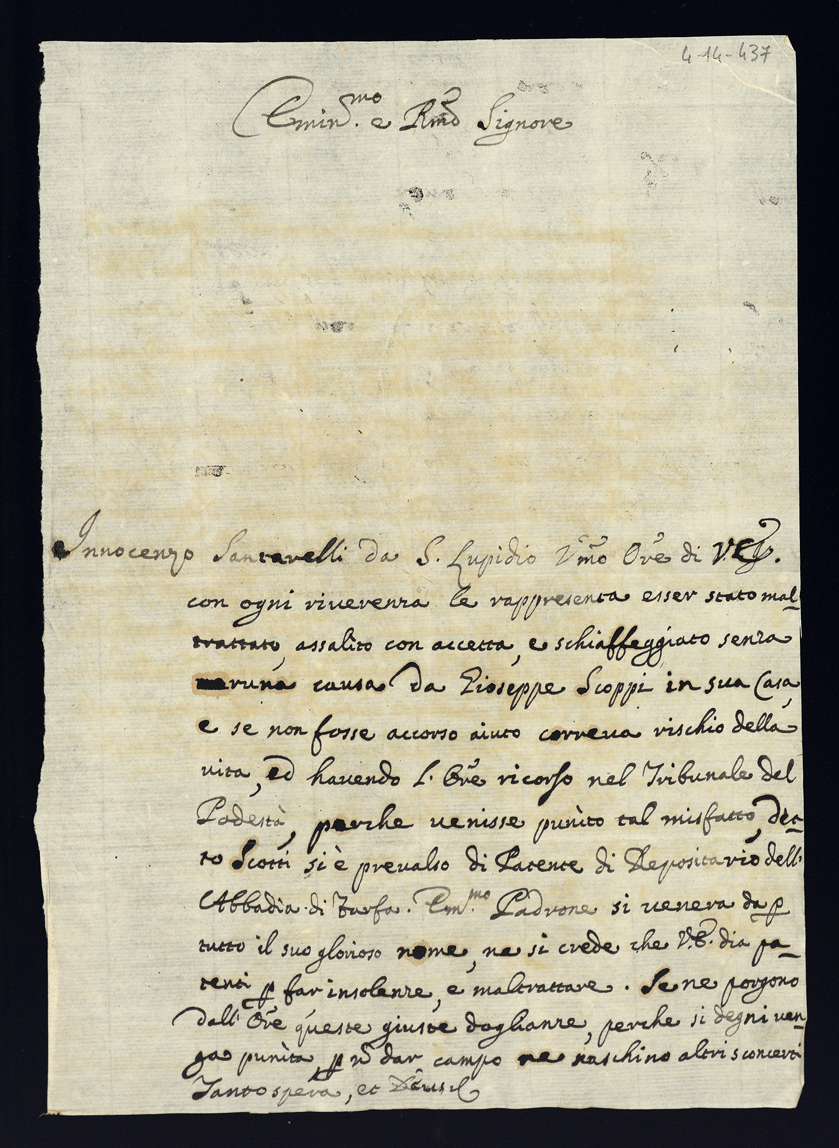 4-14-437
Emin.mo e Rmo Signore
Innocenzo Santarelli da S. Lupidio Vmo Ore di V.E.
con ogni riverenza le rappresenta esser stato mal=
trattato, assalito con accetta, e schiaffeggiato senza
veruna causa da Gioseppe Scoppi in sua Casa,
e se non fosse accorso aiuto correva rischio della
vita, ed havendo l. Ore ricorso nel Tribunale del
Podestà, perche venisse punito tal misfatto, det=
to Scotti si è prevalso di Patente di Depositario dell'
Abbadia di Farfa. Em.mo Padrone si venera da p
tutto il suo glorioso nome, ne si crede che V.E. dia pa=
tenti p far insolenze, e maltrattare. Se ne porgono
dall' Ore queste giuste doglianze, perche si degni ven=
ga punita, p n dar campo ne naschino altri sconcerti
Tanto spera, et